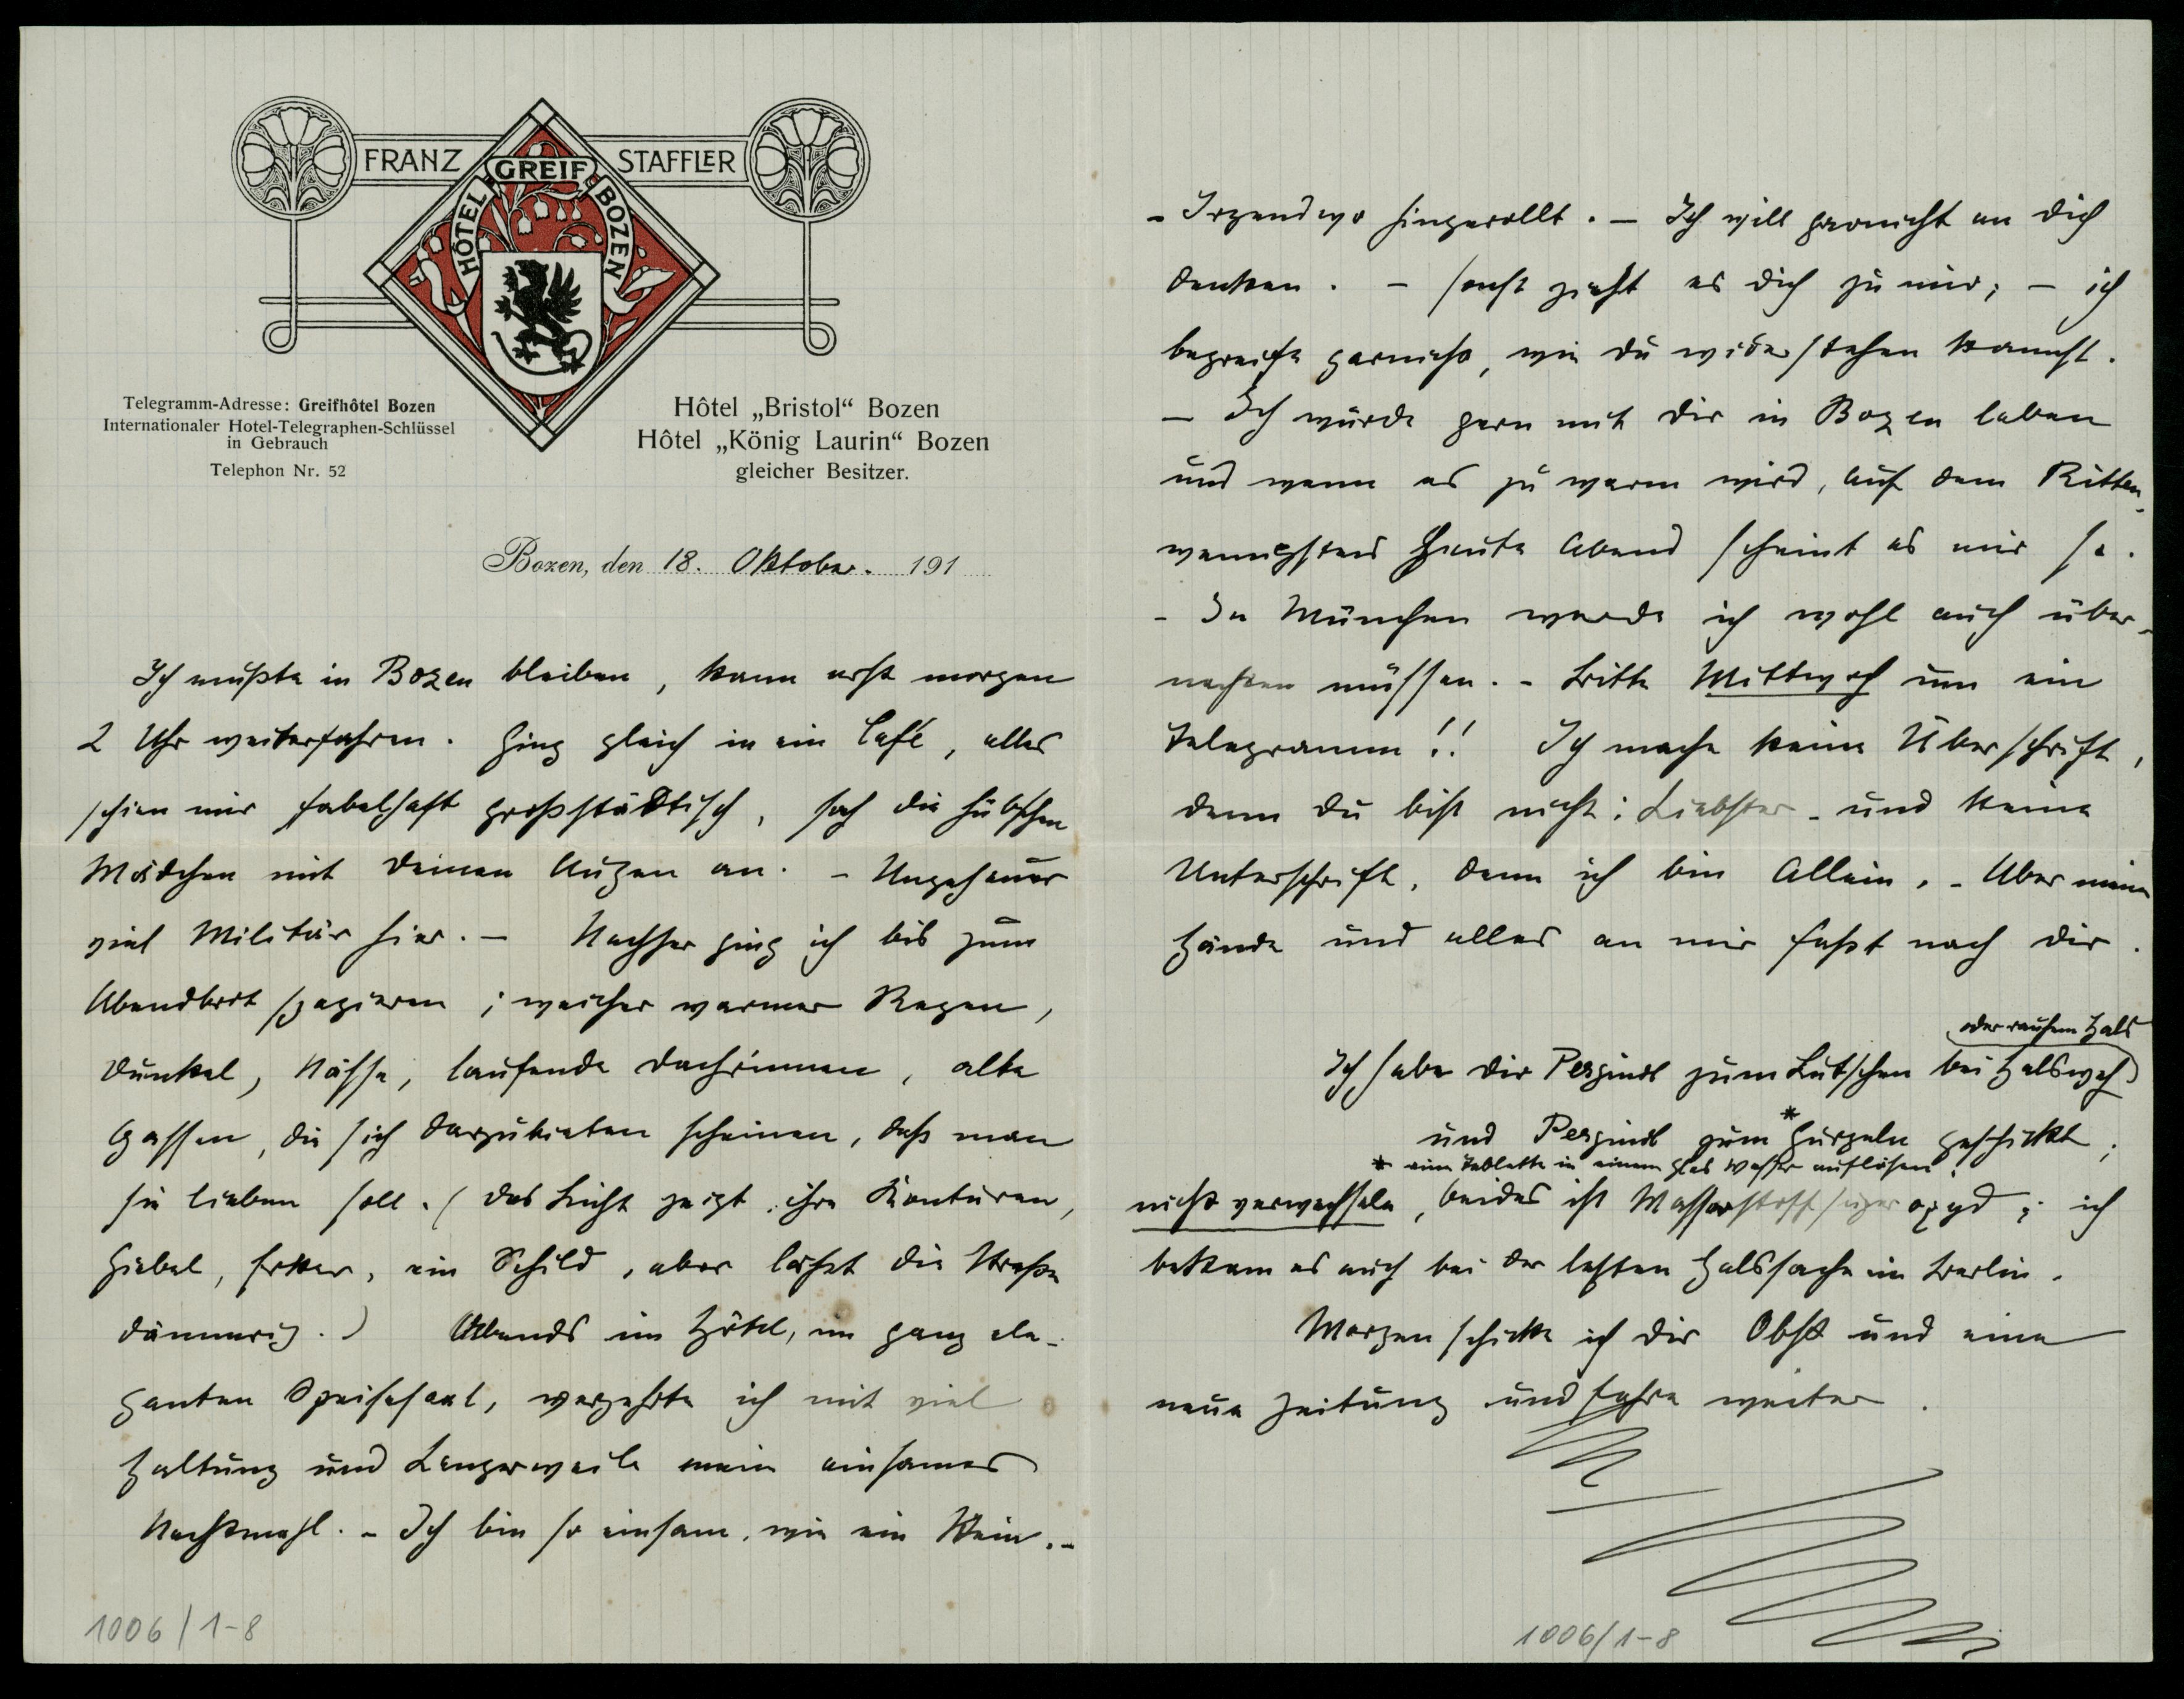 FRANZ STAFFLER
HÔTEL GREIF BOZEN
Telegramm-Adresse: Greifhôtel Bozen
Internationaler Hotel-Telegraphen-Schlüssel
in Gebrauch
Telephon Nr. 52
Hôtel „Bristol“ Bozen
Hôtel „König Laurin“ Bozen
gleicher Besitzer.
Bozen, den 18. Oktober. 191
Ich mußte in Bozen bleiben, kann erst morgen
2 Uhr weiterfahren. Ging gleich in ein Café, alles
schien mir fabelhaft großstädtisch, sah die hübschen
Mädchen mit deinen Augen an. – Ungeheuer
viel Militär hier. – Nachher ging ich bis zum
Abendbrot spazieren; weicher warmer Regen,
Dunkel, Nässe, laufende Dachrinnen, alte
Gassen, die sich darzubieten scheinen, daß man
sie lieben soll. (Das Licht zeigt ihre Konturen,
Giebel, Erker, ein Schild, aber läßt die Straße
dämmrig.) Abends im Hôtel, im ganz ele-
ganten Speisesaal, verzehrte ich mit viel
Haltung und Langerweile mein einsames
Nachtmahl. – Ich bin so einsam, wie ein Stein. –
– Irgendwo hingerollt. – Ich will garnicht an dich
denken. – sonst zieht es dich zu mir; – ich
begreife garnicht, wie du widerstehen kannst.
– Ich würde gern mit dir in Bozen leben
und wenn es zu warm wird, auf dem Ritten,
wenigstens heute Abend scheint es mir so.
– In München werde ich wohl auch über-
nachten müssen. – Bitte Mittwoch um ein
Telegramm!! Ich mache keine Überschrift,
denn du bist nicht: Liebster – und keine
Unterschrift, denn ich bin Allein. – Aber meine
Hände und alles an mir faßt nach dir.
oder rauhem Hals
Ich habe dir Perginol zum Lutschen bei Halsweh)
und Perginol zum * Gurgeln geschickt;
* eine Tablette in einem Glas Wasser auflösen.
nicht verwechseln, beides ist Wasserstoffsuperoxyd; ich
bekam es auch bei der letzten Halssache in Berlin.
Morgen schicke ich dir Obst und eine
neue Zeitung und fahre weiter.
1006/1-8
1006/1-8